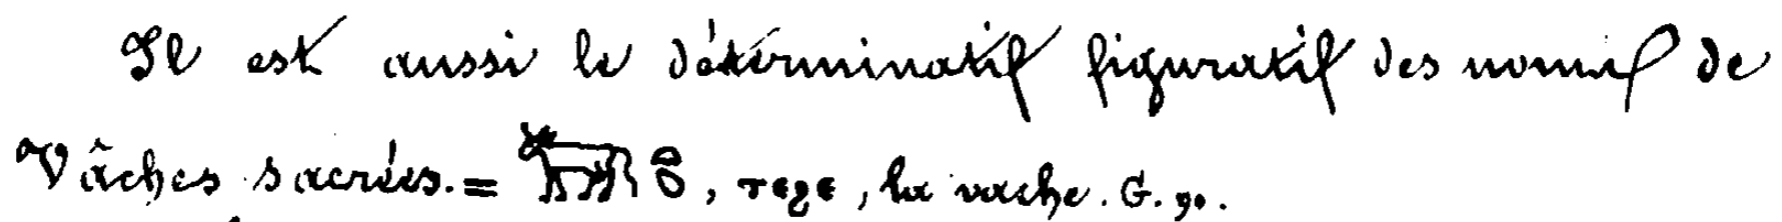 Il est aussi le déterminatif figuratif des noms de
Vâches sacrées. = , ⲧⲉϩⲉ, la vache. G. 90.